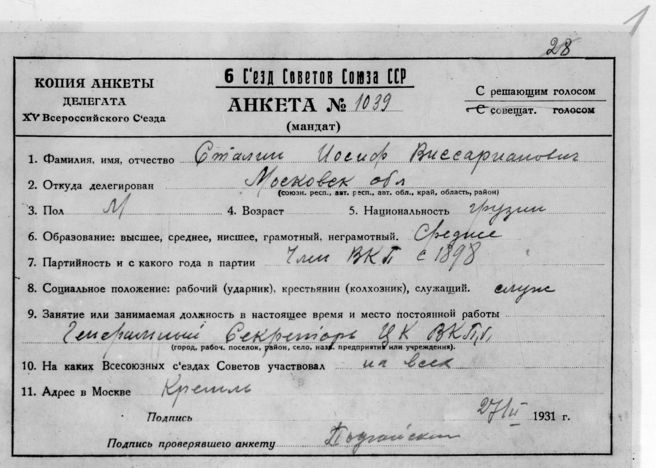 1
28
КОПИЯ АНКЕТЫ
ДЕЛЕГАТА
XV Всероссийского С'езда
6 С'езд Советов Союза ССР
АНКЕТА № 1039
(мандат)
С решающим голосом
С совещат. голосом
1. Фамилия, имя, отчество Сталин Иосиф Виссарианович
2. Откуда делегирован Московск обл
(союзн. респ., авт. респ., авт. обл., край, область, район)
3. Пол М 4. Возраст 5. Национальность грузин
6. Образование: высшее, среднее, нисшее, грамотный, неграмотный. Среднее
7. Партийность и с какого года в партии Член ВКП с 1898
8. Социальное положение: рабочий (ударник), крестьянин (колхозник), служащий. служ
9. Занятие или занимаемая должность в настоящее время и место постоянной работы
Генеральный Секретарь ЦК ВКП
(город, рабоч. поселок, район, село, назв. предприятия или учреждения).
10. На каких Всесоюзных с'ездах Советов участвовал на всех
11. Адрес в Москве Кремль
Подпись 27/II 1931 г.
Подпись проверявшего анкету